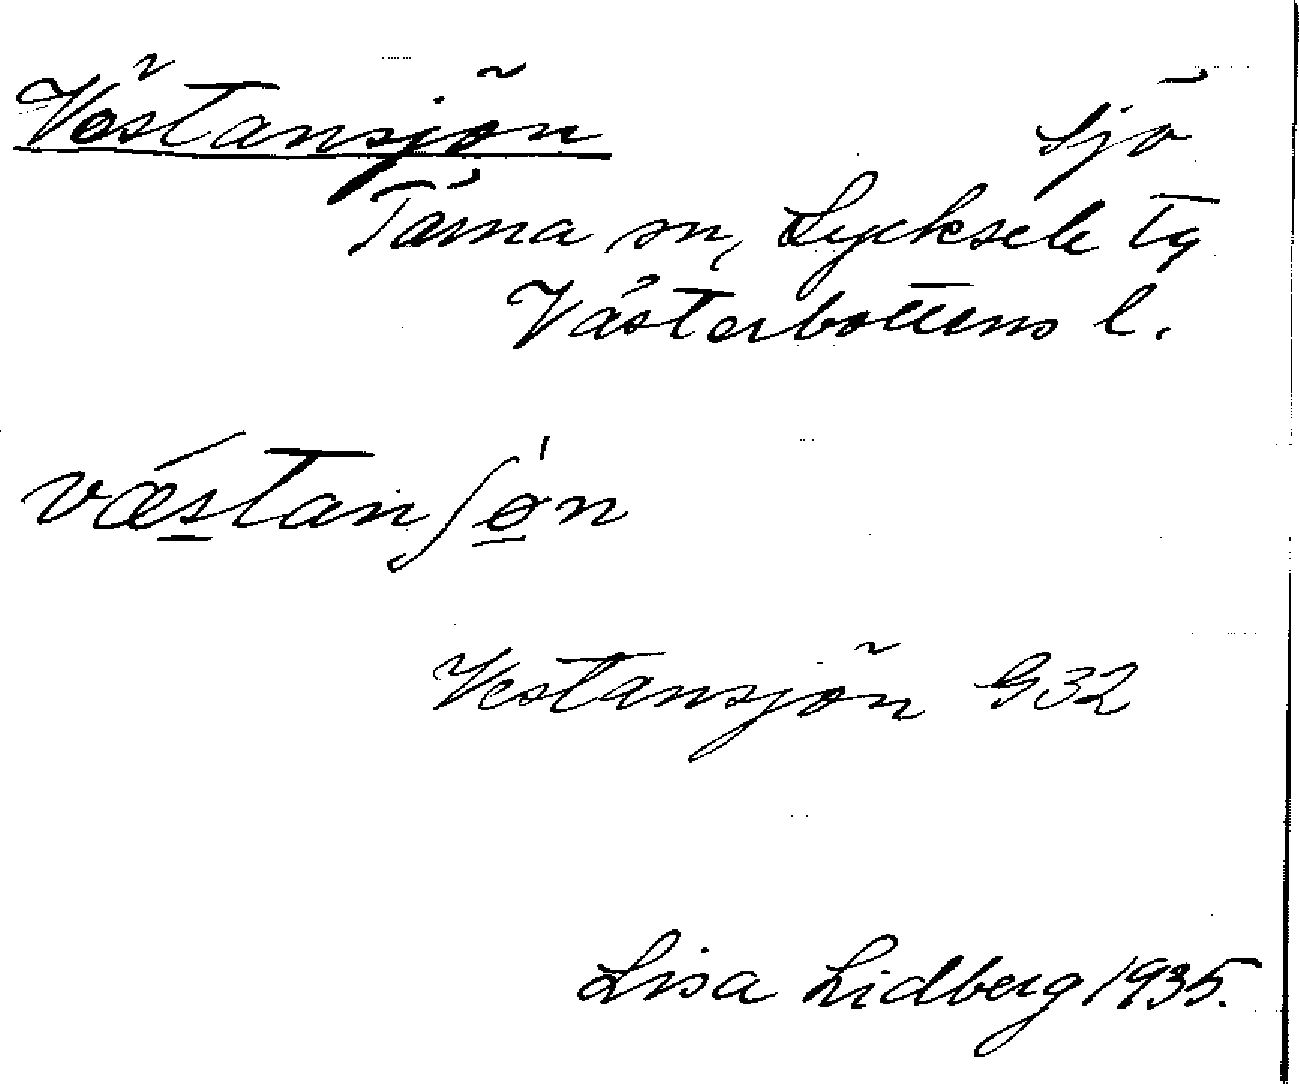 Västansjön sjö
Tärna sn, Lycksele tg
Västerbottens l.
væstanʃøn
Vestansjön G32
Lisa Lidberg 1935.